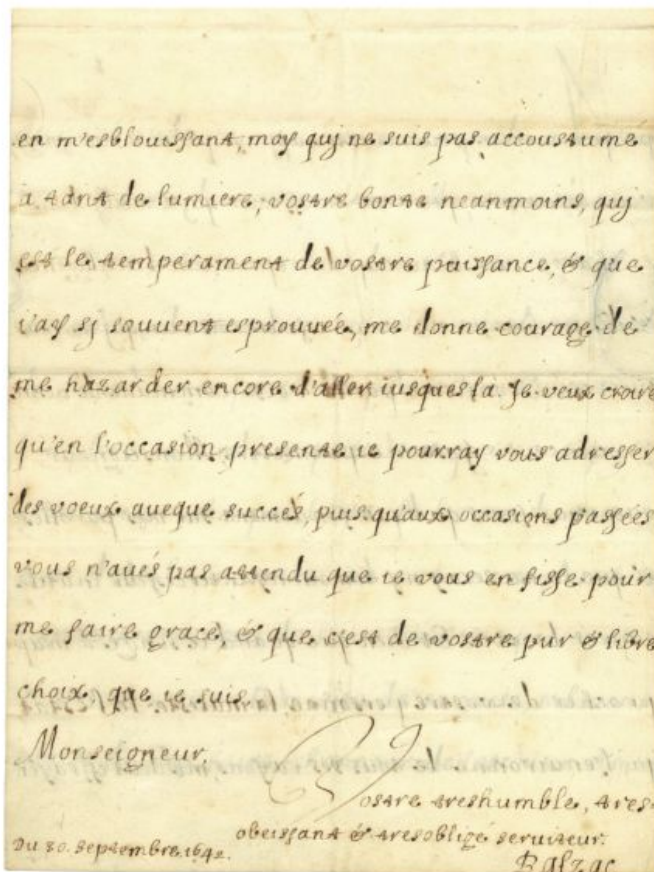 en m'esblouissant, moy qui ne suis pas accoustumé
a tant de lumiere, vostre bonté neanmoins, qui
est le temperament de vostre puissance, & que
i'ay si souvent esprouvée, me donne courage de
me hazarder encore d'aller iusques la. Je veux croire
qu'en l'occasion presente ie pourray vous adresser
des voeux aueque succés, puis qu'aux occasions passées
vous n'aués pas attendu que ie vous en fisse pour
me faire grace, & que c'est de vostre pur & libre
choix que ie suis
Monseigneur,
Vostre treshumble, tres
obeissant & tresobligé serviteur.
Du 30. Septembre. 1642.
Balzac